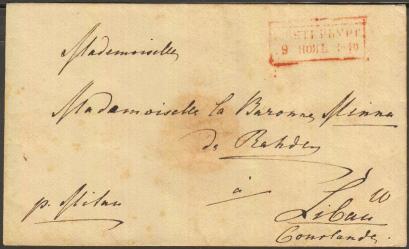 Mademoiselle
9 ІЮНЯ 1840
Mademoiselle la Baronne Minna
de Rahden
à
p. Mitau
Libau
10
Courlande